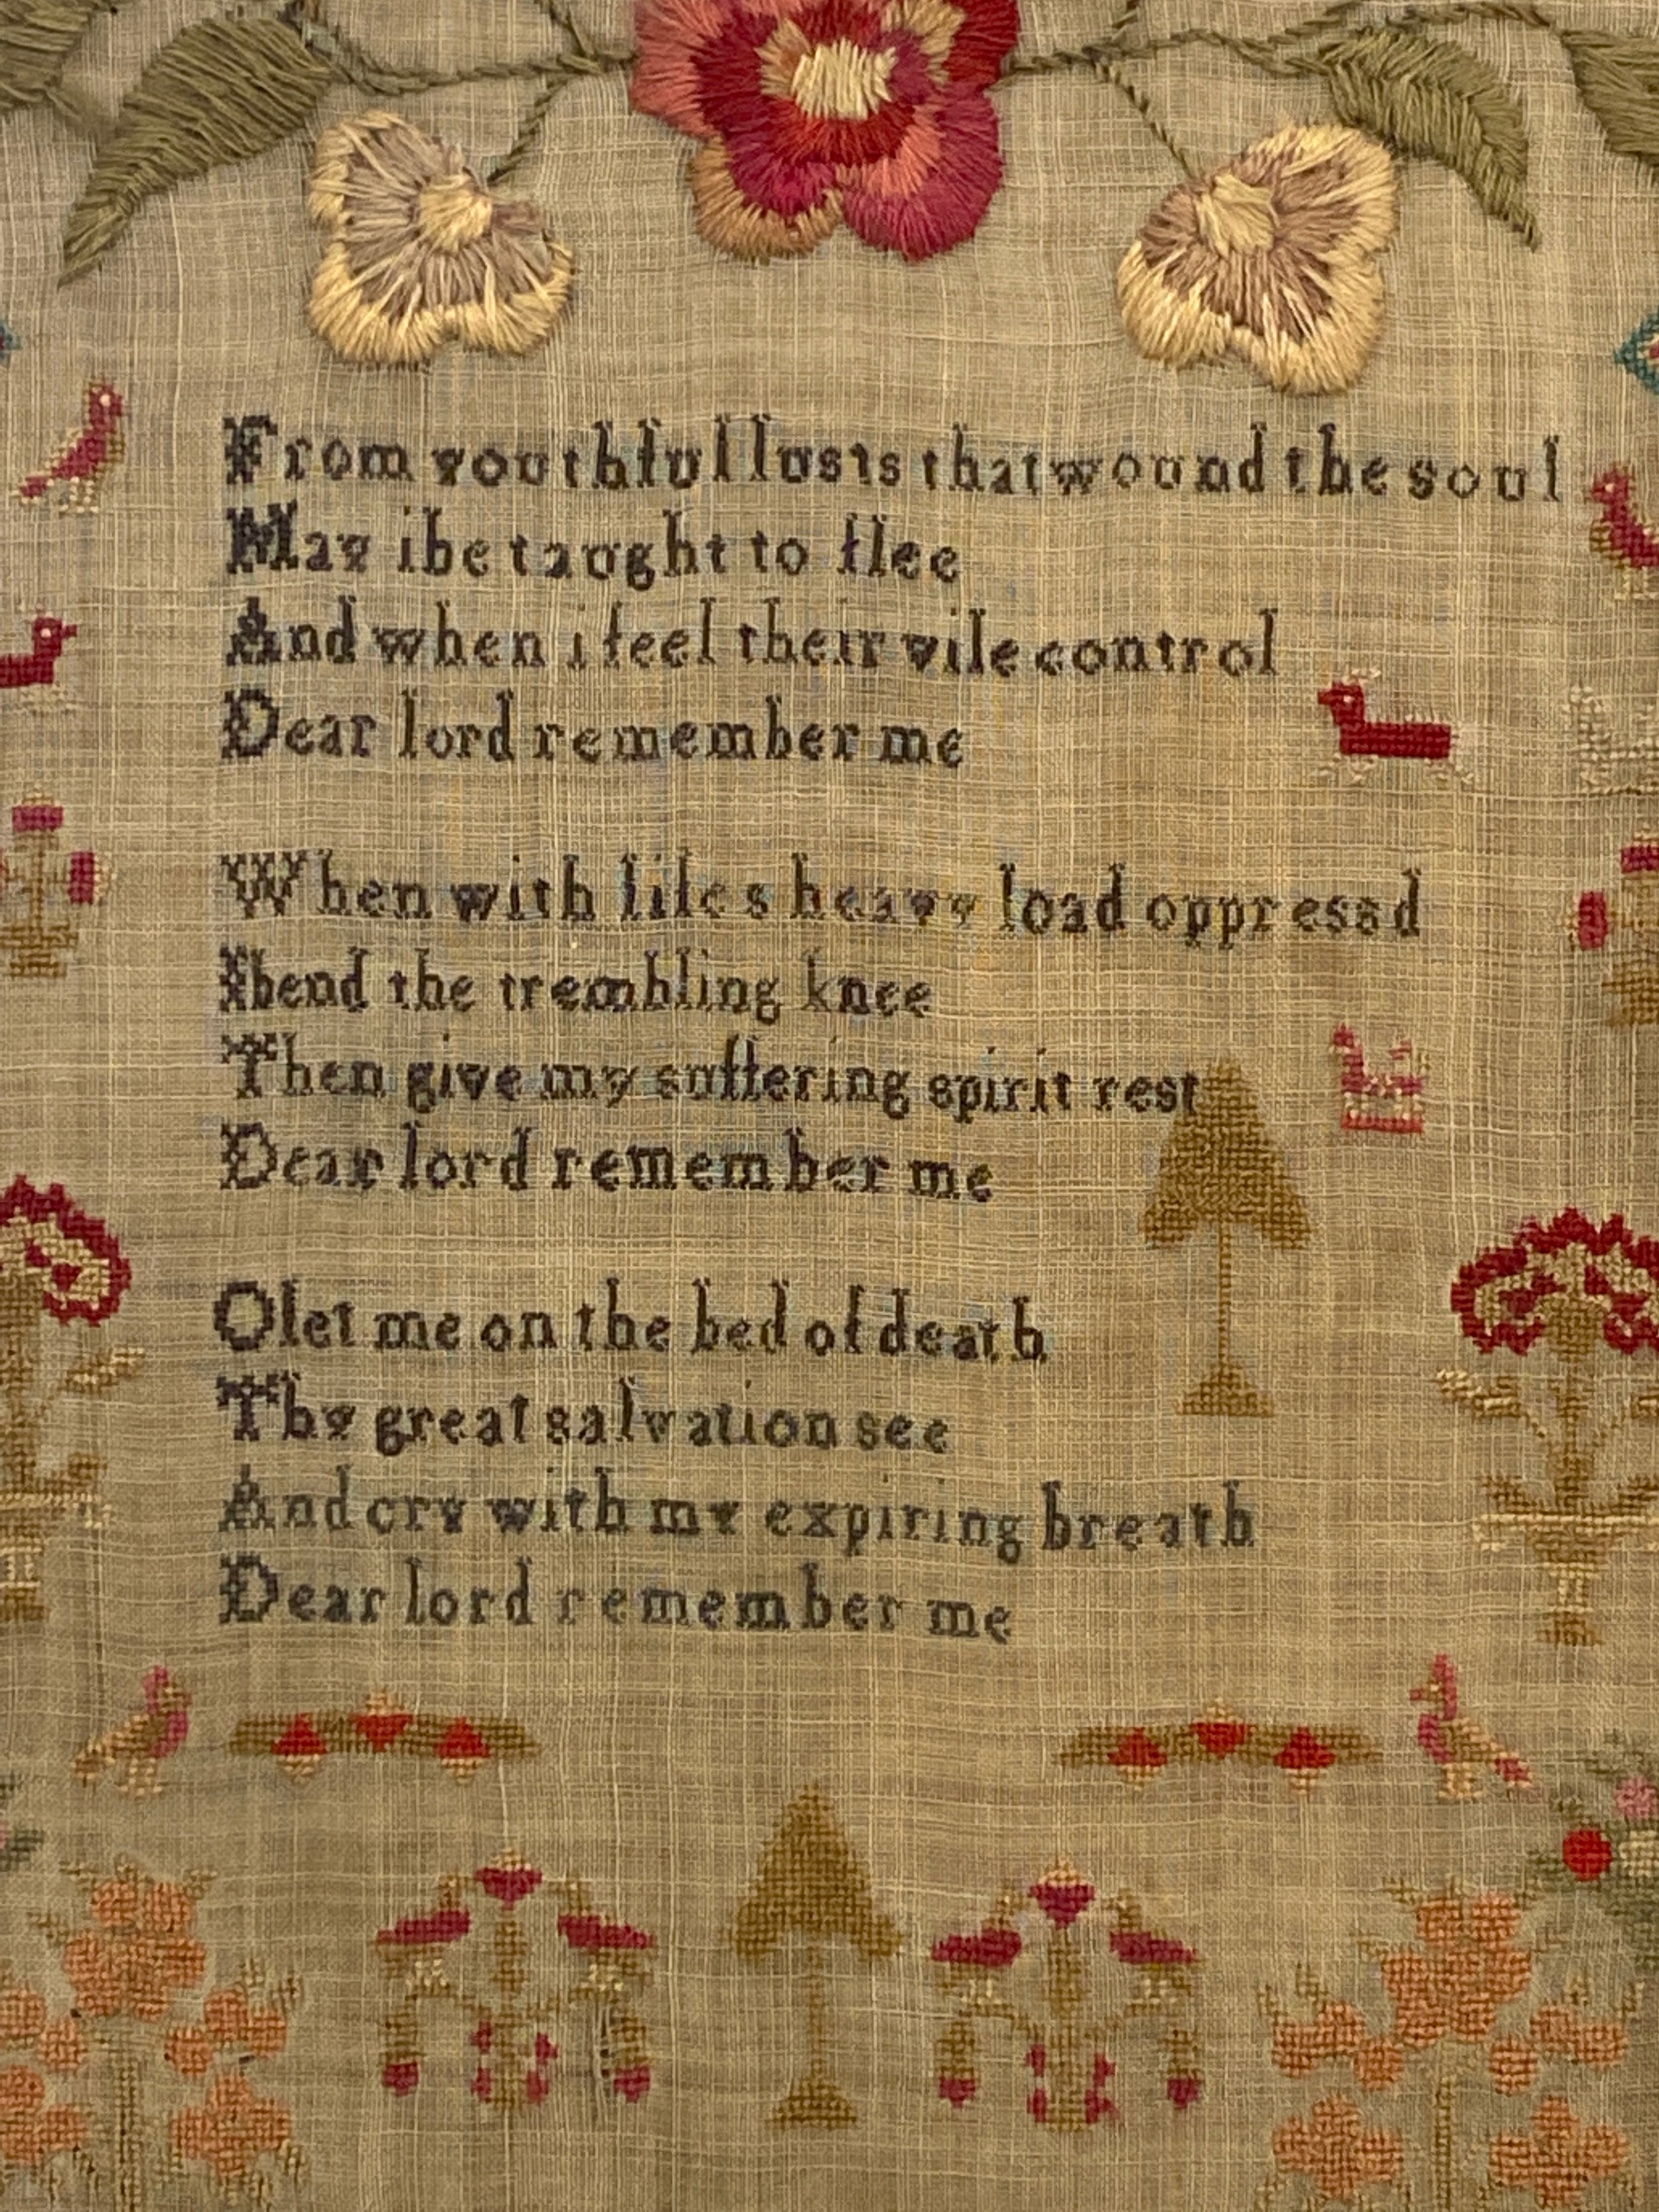 From youthful lusts that wound the soul
May i be taught to flee
And when i feel their vile control
Dear lord remember me
When with lifes heavy load oppressd
I bend the trembling knee
Then give my suffering spirit rest
Dear lord remember me
O let me on the bed of death
Thy great salvation see
And cry with my expiring breath
Dear lord remember me